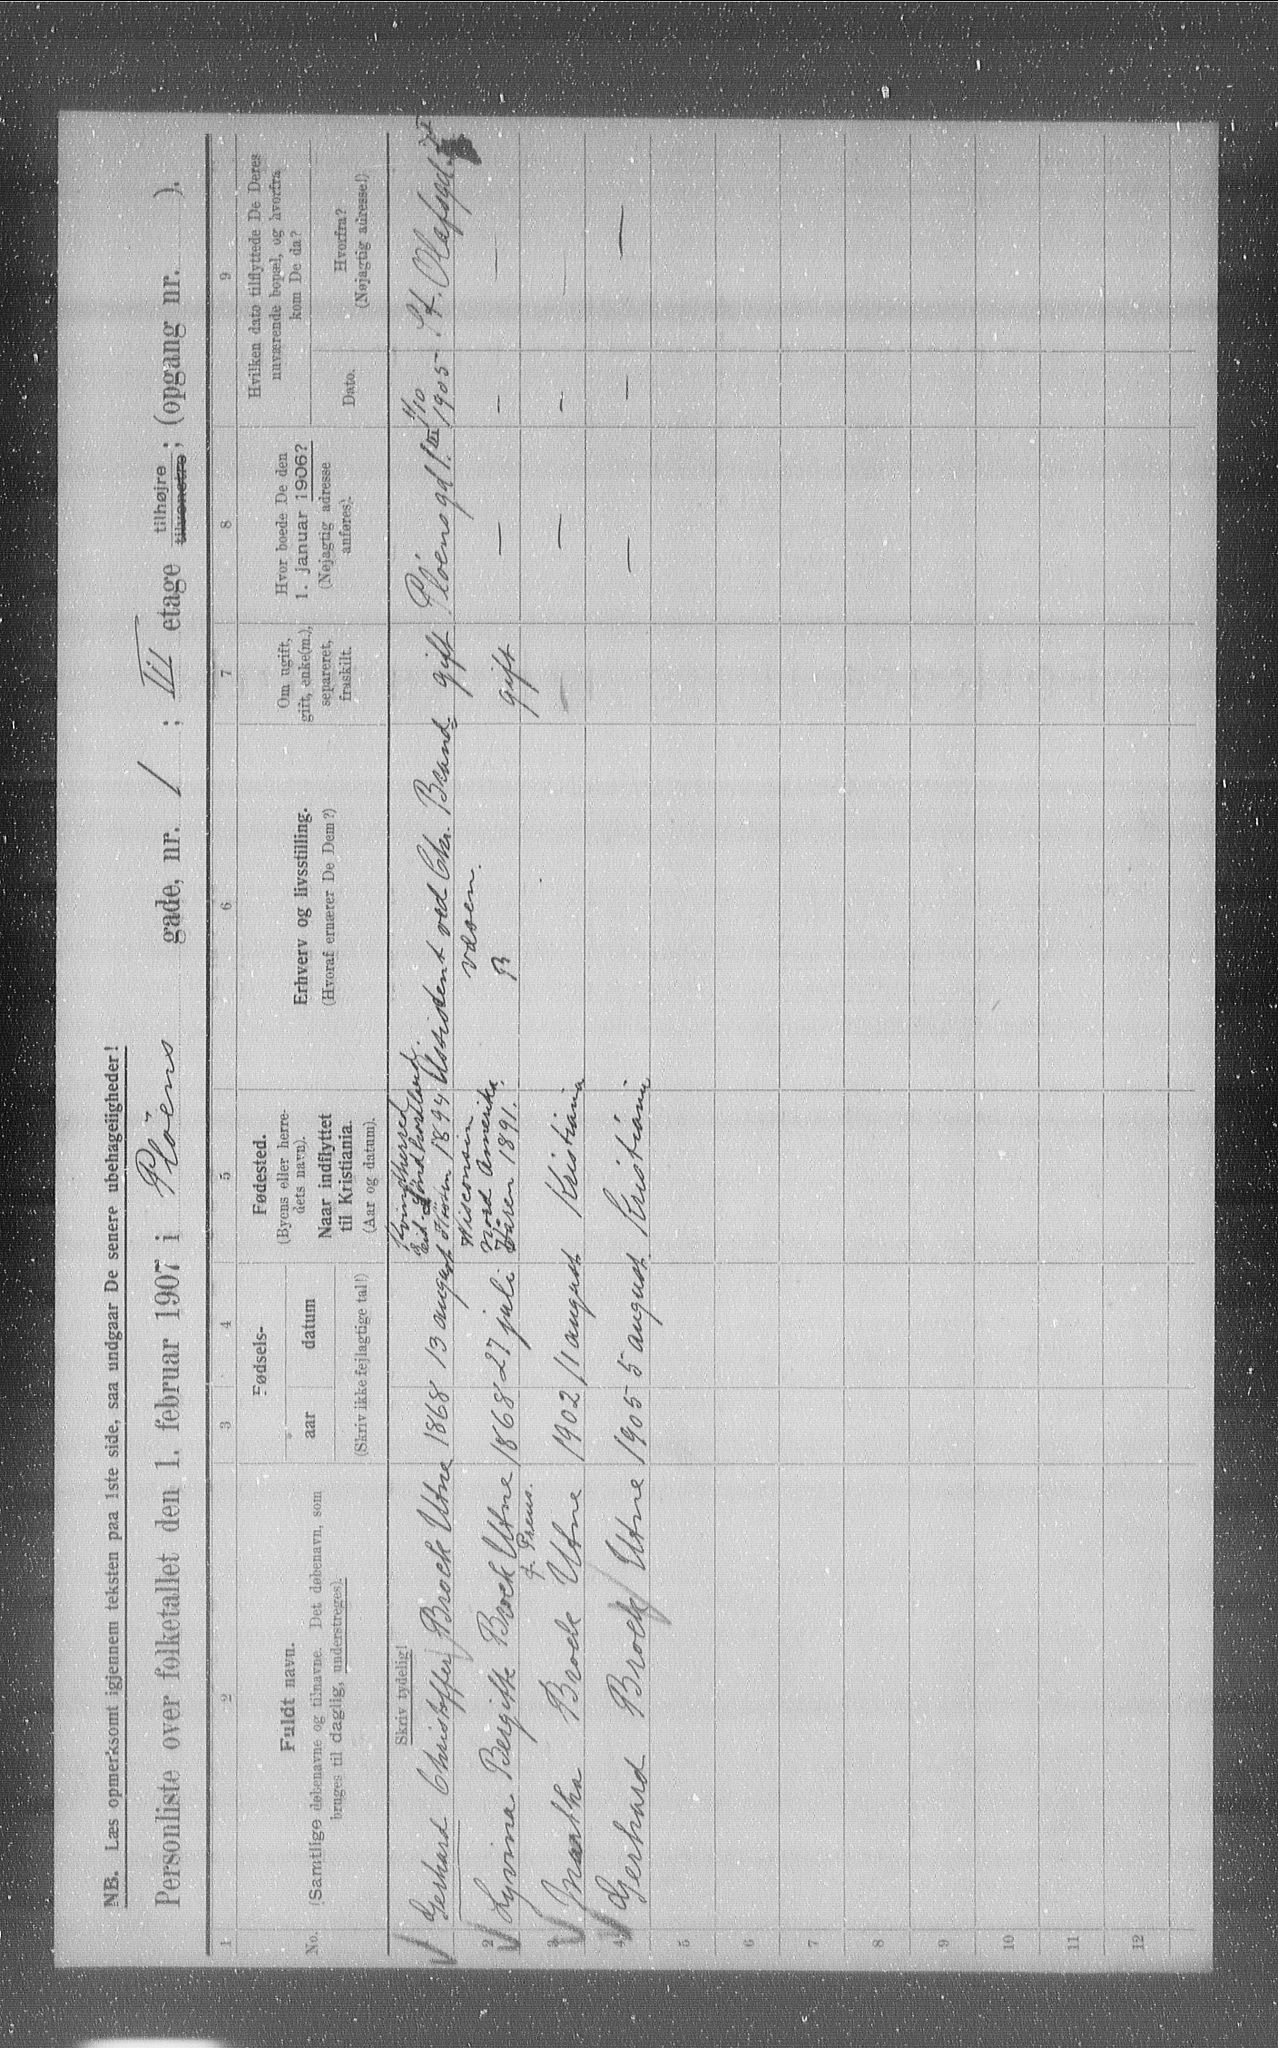 NB. Læs opmerksomt igjennem teksten paa 1ste side, saa undgaar De senere ubehageligheder!
Personliste over folketallet den 1. februar 1907 i Pløens gade, nr. 1 ; III etage tilhøjre tilvenstre; (opgang nr. ).
1 2 3 4 5 6 7 8 9
No.
Fuldt navn.
(Samtlige døbenavne og tilnavne. Det døbenavn, som
bruges til daglig, understreges).
Fødsels-
aar datum
(Skriv ikke fejlagtige tal!)
Fødested.
(Byens eller herre-
dets navn).
Naar indflyttet
til Kristiania.
(Aar og datum).
Erhverv og livsstilling.
(Hvoraf ernærer De Dem?)
Om ugift,
gift, enke(m.),
separeret,
fraskilt.
Hvor boede De den
1. januar 1906?
(Nøjagtig adresse
anføres).
Hvilken dato tilflyttede De Deres
nuværende bopæl, og hvorfra
kom De da?
Dato.
Hvorfra?
(Nøjagtig adresse!)
Skriv tydelig!
Gerhard Christoffer Brock Utne 1868 13 august Kvindherred Høsten 1894 Assistent ved Chr. Brand= væsen. gift Pløensgd 1. III 1/10 1905 St. Olafsgd.
2 Lyvina Bergitte Brock Utne 1868 27 juli Wisconsin Nord Amerika Våren 1891. gift — — —
3 Brock Utne 1902 11 august Kristiania — — —
4 Gerhard Brock Utne 1905 5 august Kristiania — — —
5
6
7
8
9
10
11
12